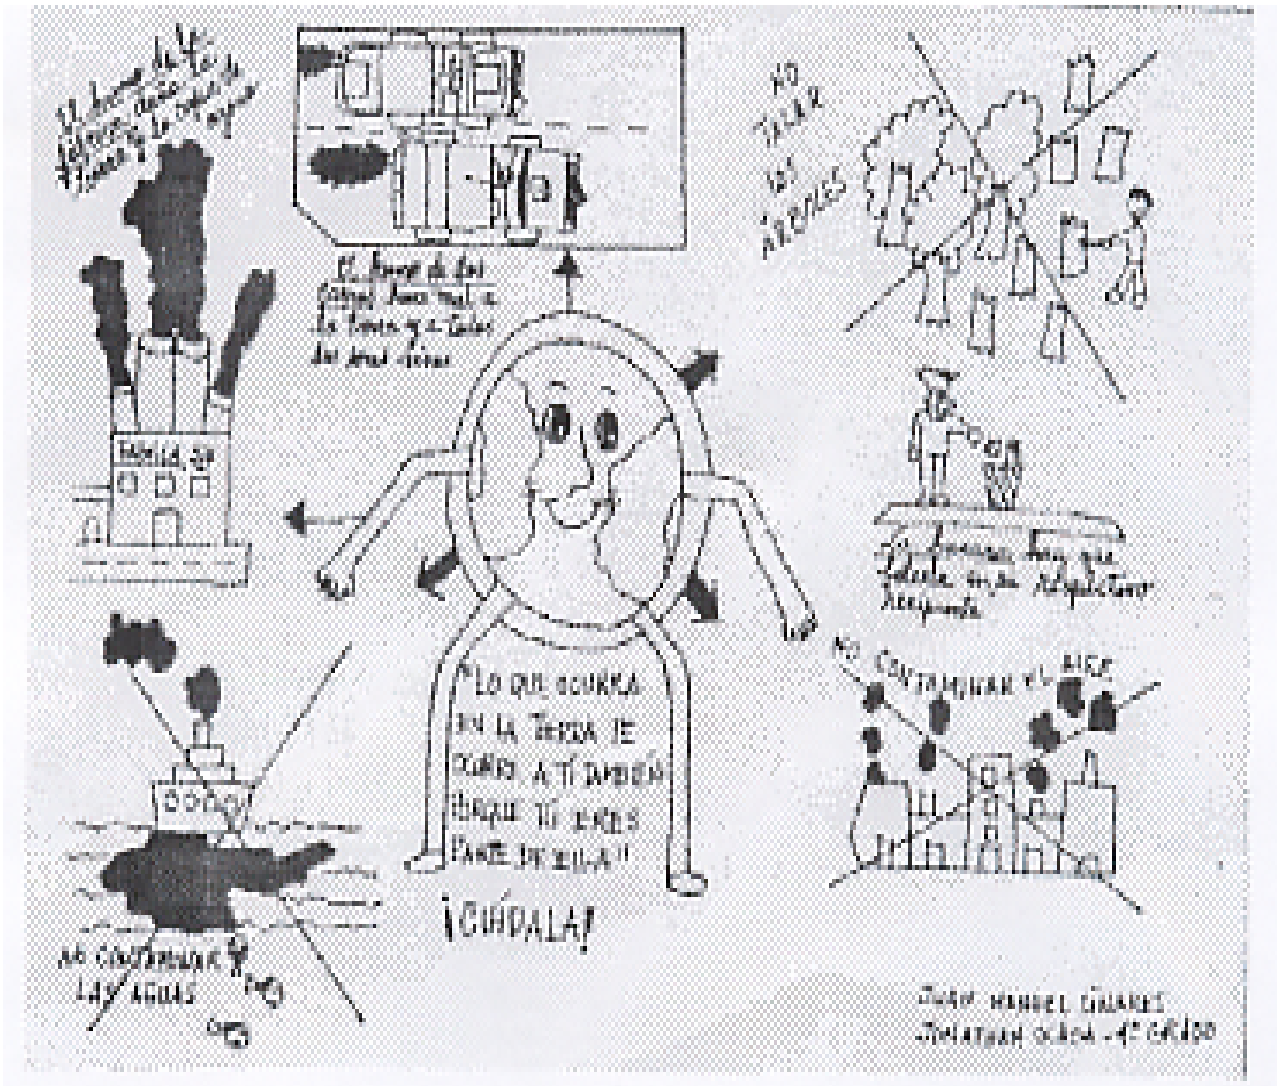 El humo de
fábricas daña
la capa de
NO
TALAR
LOS
ÁRBOLES
El humo de los
carros hace mal a
la tierra y a todos
los seres vivos
FABRICA
La basura hay que
en su respectivo
recipiente
NO CONTAMINAR EL AIRE
"LO QUE OCURRA
EN LA TIERRA TE
OCURRE A TÍ TAMBIÉN
PORQUE TÚ ERES
PARTE DE ELLA"
¡CUÍDALA!
NO CONTAMINAR
LAS AGUAS
JUAN MANUEL LINARES
JONATHAN - 4º GRADO